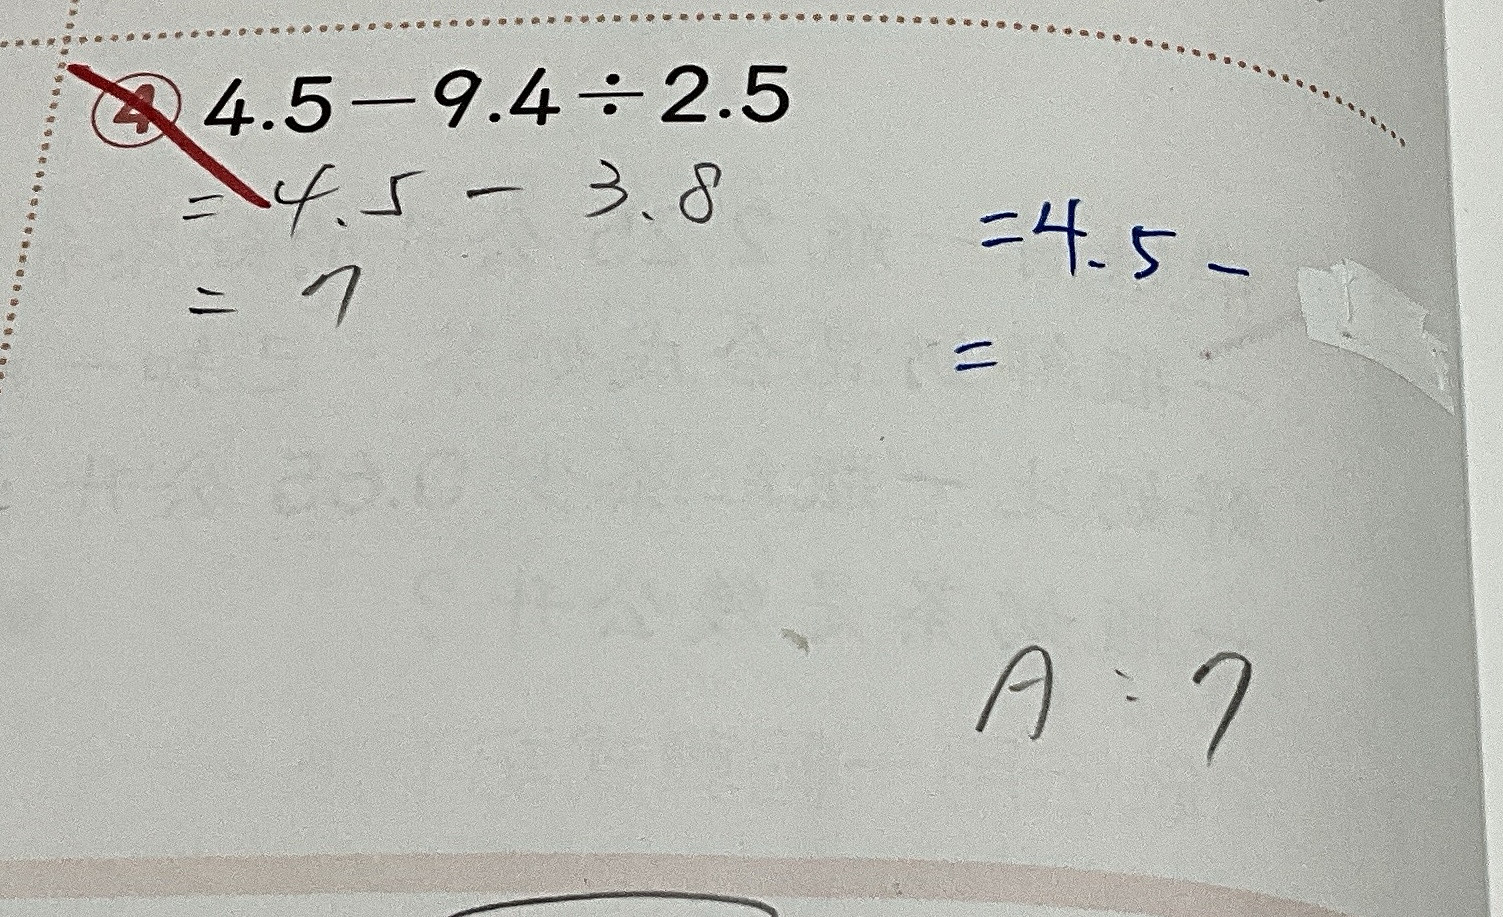 ④ 4.5－9.4÷2.5
= 4.5 - 3.8
= 7
= 4.5 -
=
A : 7